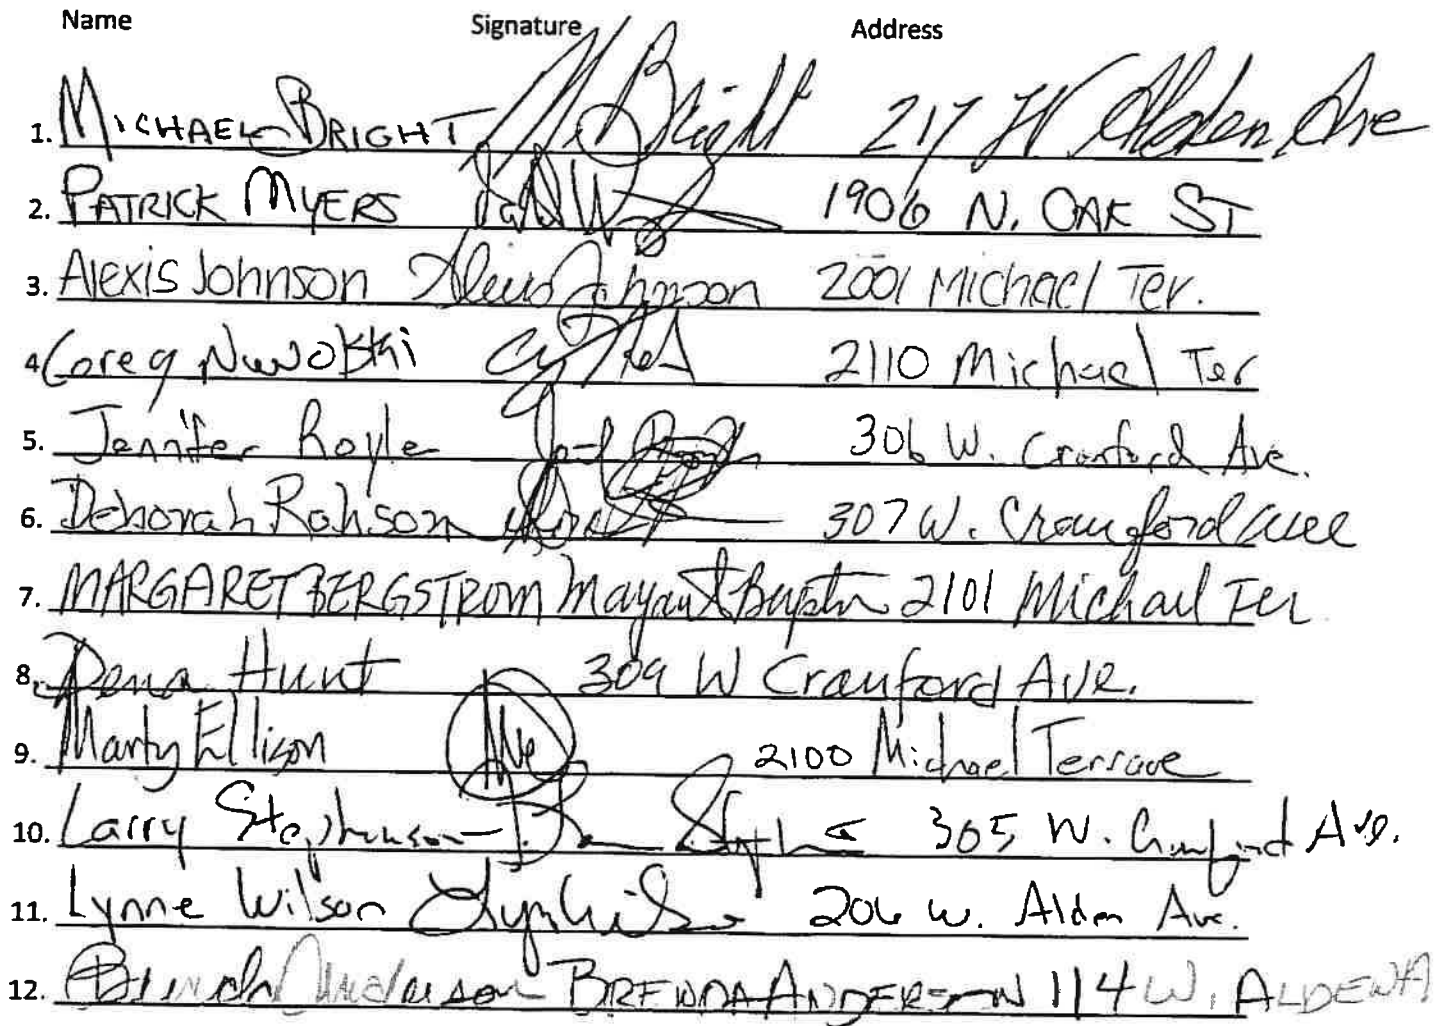 Name Signature Address
1. MICHAEL BRIGHT M Bright 217 W Alden Ave
2. PATRICK MYERS 1906 N. OAK ST
3. Alexis Johnson Alexis Johnson 2001 Michael Ter.
4. Greg 2110 Michael Ter
5. Jennifer Royle 306 W. Cranford Ave.
6. Deborah Robson 307 W. Crawford Ave
7. MARGARET BERGSTROM 2101 Michael Ter
8. Dena Hunt 309 W Crawford Ave.
9. Marty Ellison ME 2100 Michael Terrace
10. Larry Stephenson 305 W. Ave.
11. Lynne Wilson Lyn Wilson 206 W. Alden Ave.
12. Brenda Anderson BRENDA ANDERSON 114 W. ALDEN A